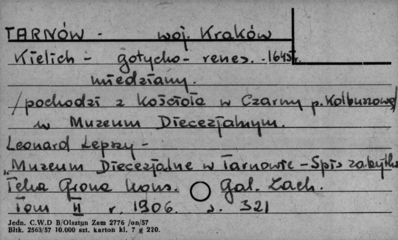 TARNÓW - woj. Kraków
Kielich - gotycko-renes. 1645r.
miedziany.
/pochodzi z Kościoła w Czarny p. Kolbuszową/
w Muzeum Diecezjalnym.
Leonard Lepszy -
"Muzeum Diecezjalne w Tarnowie - Spis zabytk
Teka Grona Kons. Gal. Zach.
Tom II r. 1906. s. 321
Jedn. C.W.D B/Olsztyn Zam 2776 /on/57
Bltk. 2563/57 10.000 szt. karton kl. 7 g 220.